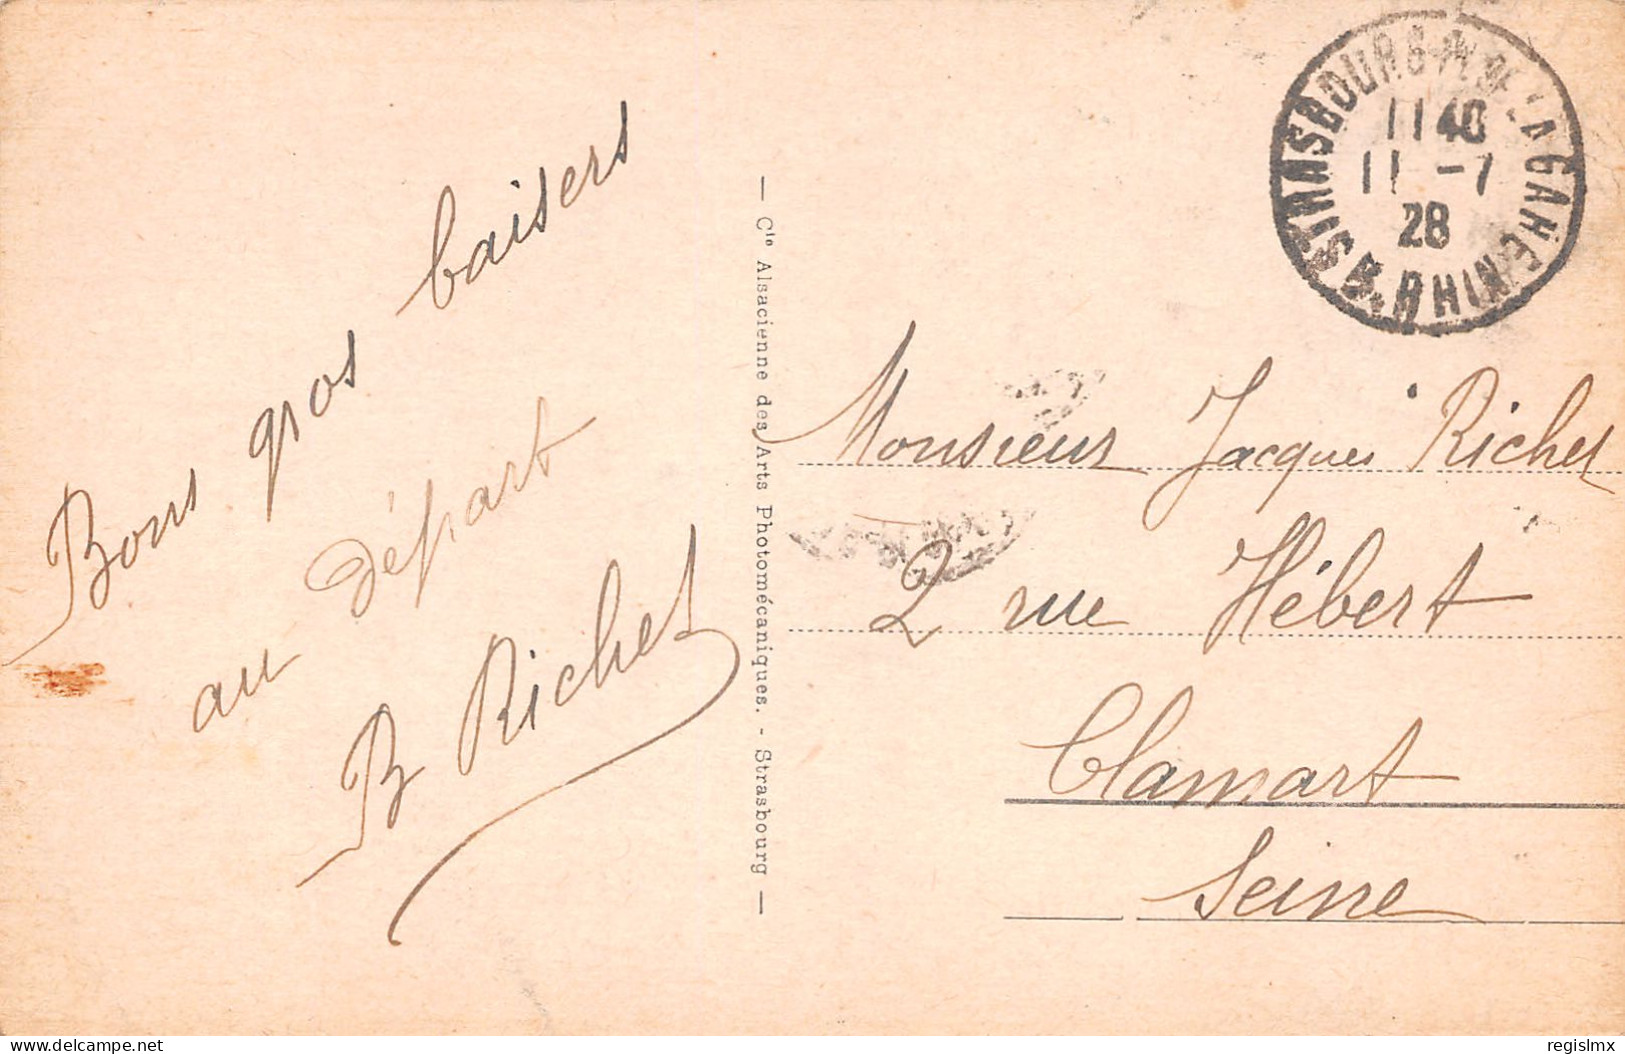 Bons gros baisers
au départ
B Richet
— Cie Alsacienne des Arts Photomécaniques. - Strasbourg —
STRASBOURG PL. DE LA GARE
1140
11 -7
28
BAS RHIN
Monsieur Jacques Richet
2 rue Hébert
Clamart
Seine
delcampe.net
regislmx